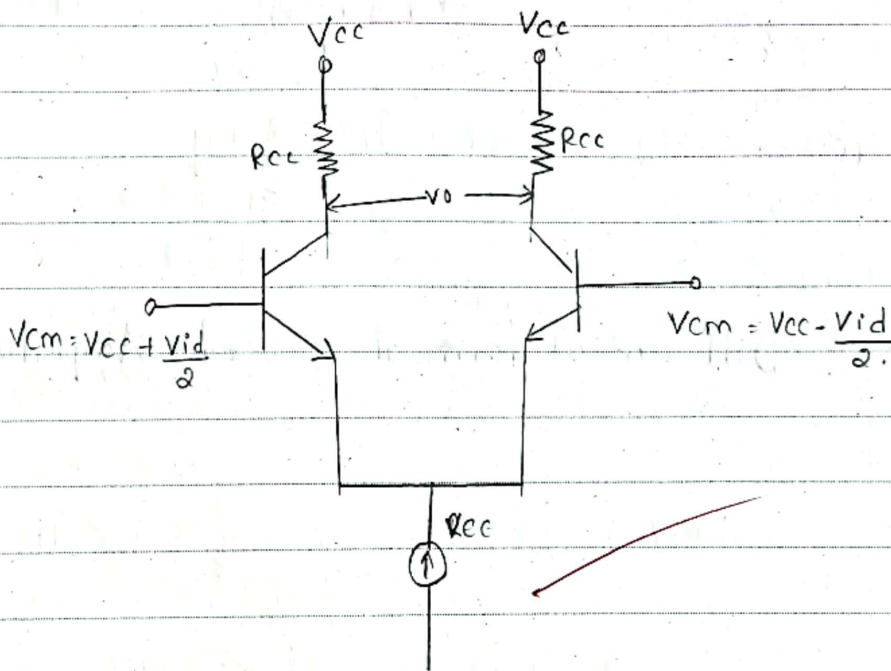 Vcc Vcc
Rcc Rcc
vo
Vcm = Vcc + Vid/2
Vcm = Vcc - Vid/2.
REC